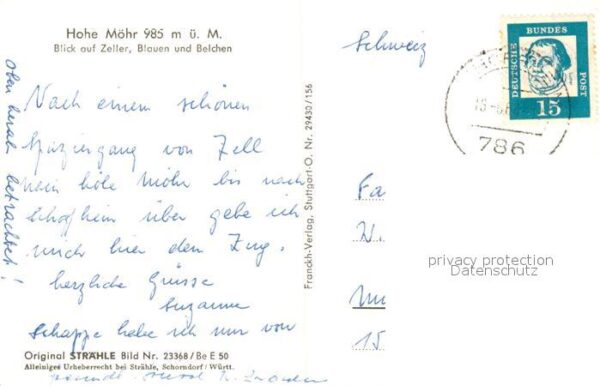 Hohe Möhr 985 m ü. M.
Blick auf Zeller, Blauen und Belchen
Nach einem schönen
Spaziergang von Zell
höle Möhr bis nach
über gebe ich
mich hier dem Zug.
herzliche Grüsse
Suzanne
Schappe habe ich nur von
oben herab betrachtet!
Original STRÄHLE Bild Nr. 23368/Be E 50
Alleiniges Urheberrecht bei Strähle, Schorndorf/Württ.
Franckh-Verlag, Stuttgart-O. Nr. 29430/556
Schweiz
DEUTSCHE BUNDESPOST
15
786
Fa
W.
15
privacy protection
Datenschutz